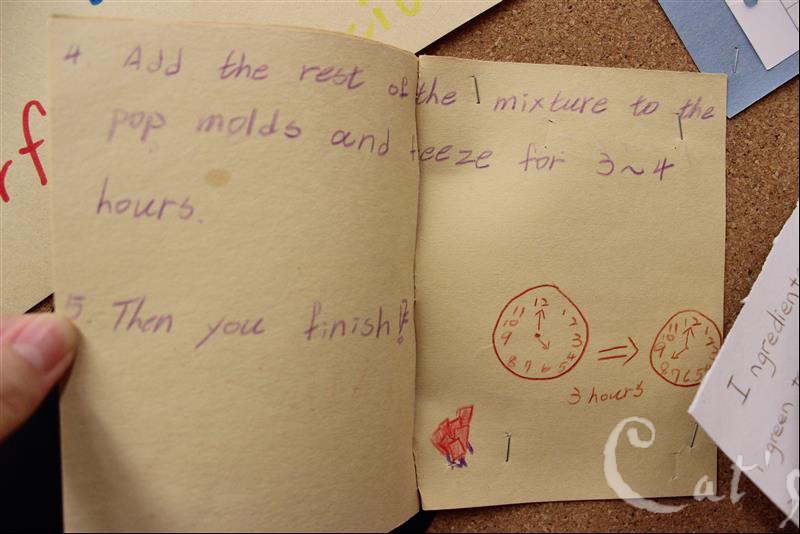 4. Add the rest of the mixture to the
pop molds and freeze for 3~4
hours.
5. Then you finish!
12
11 1
10 2
9 3
8 4
7 6 5
11 12 1
10
9
8 7 6 5
3 hours
rf
Ingredients
green
Cat's